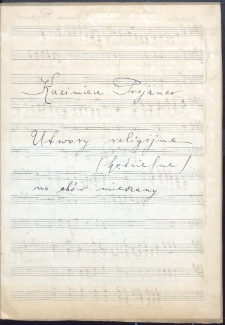 Kazimierz Prejzner
Utwory religijne
/kościelne/
na chór mieszany